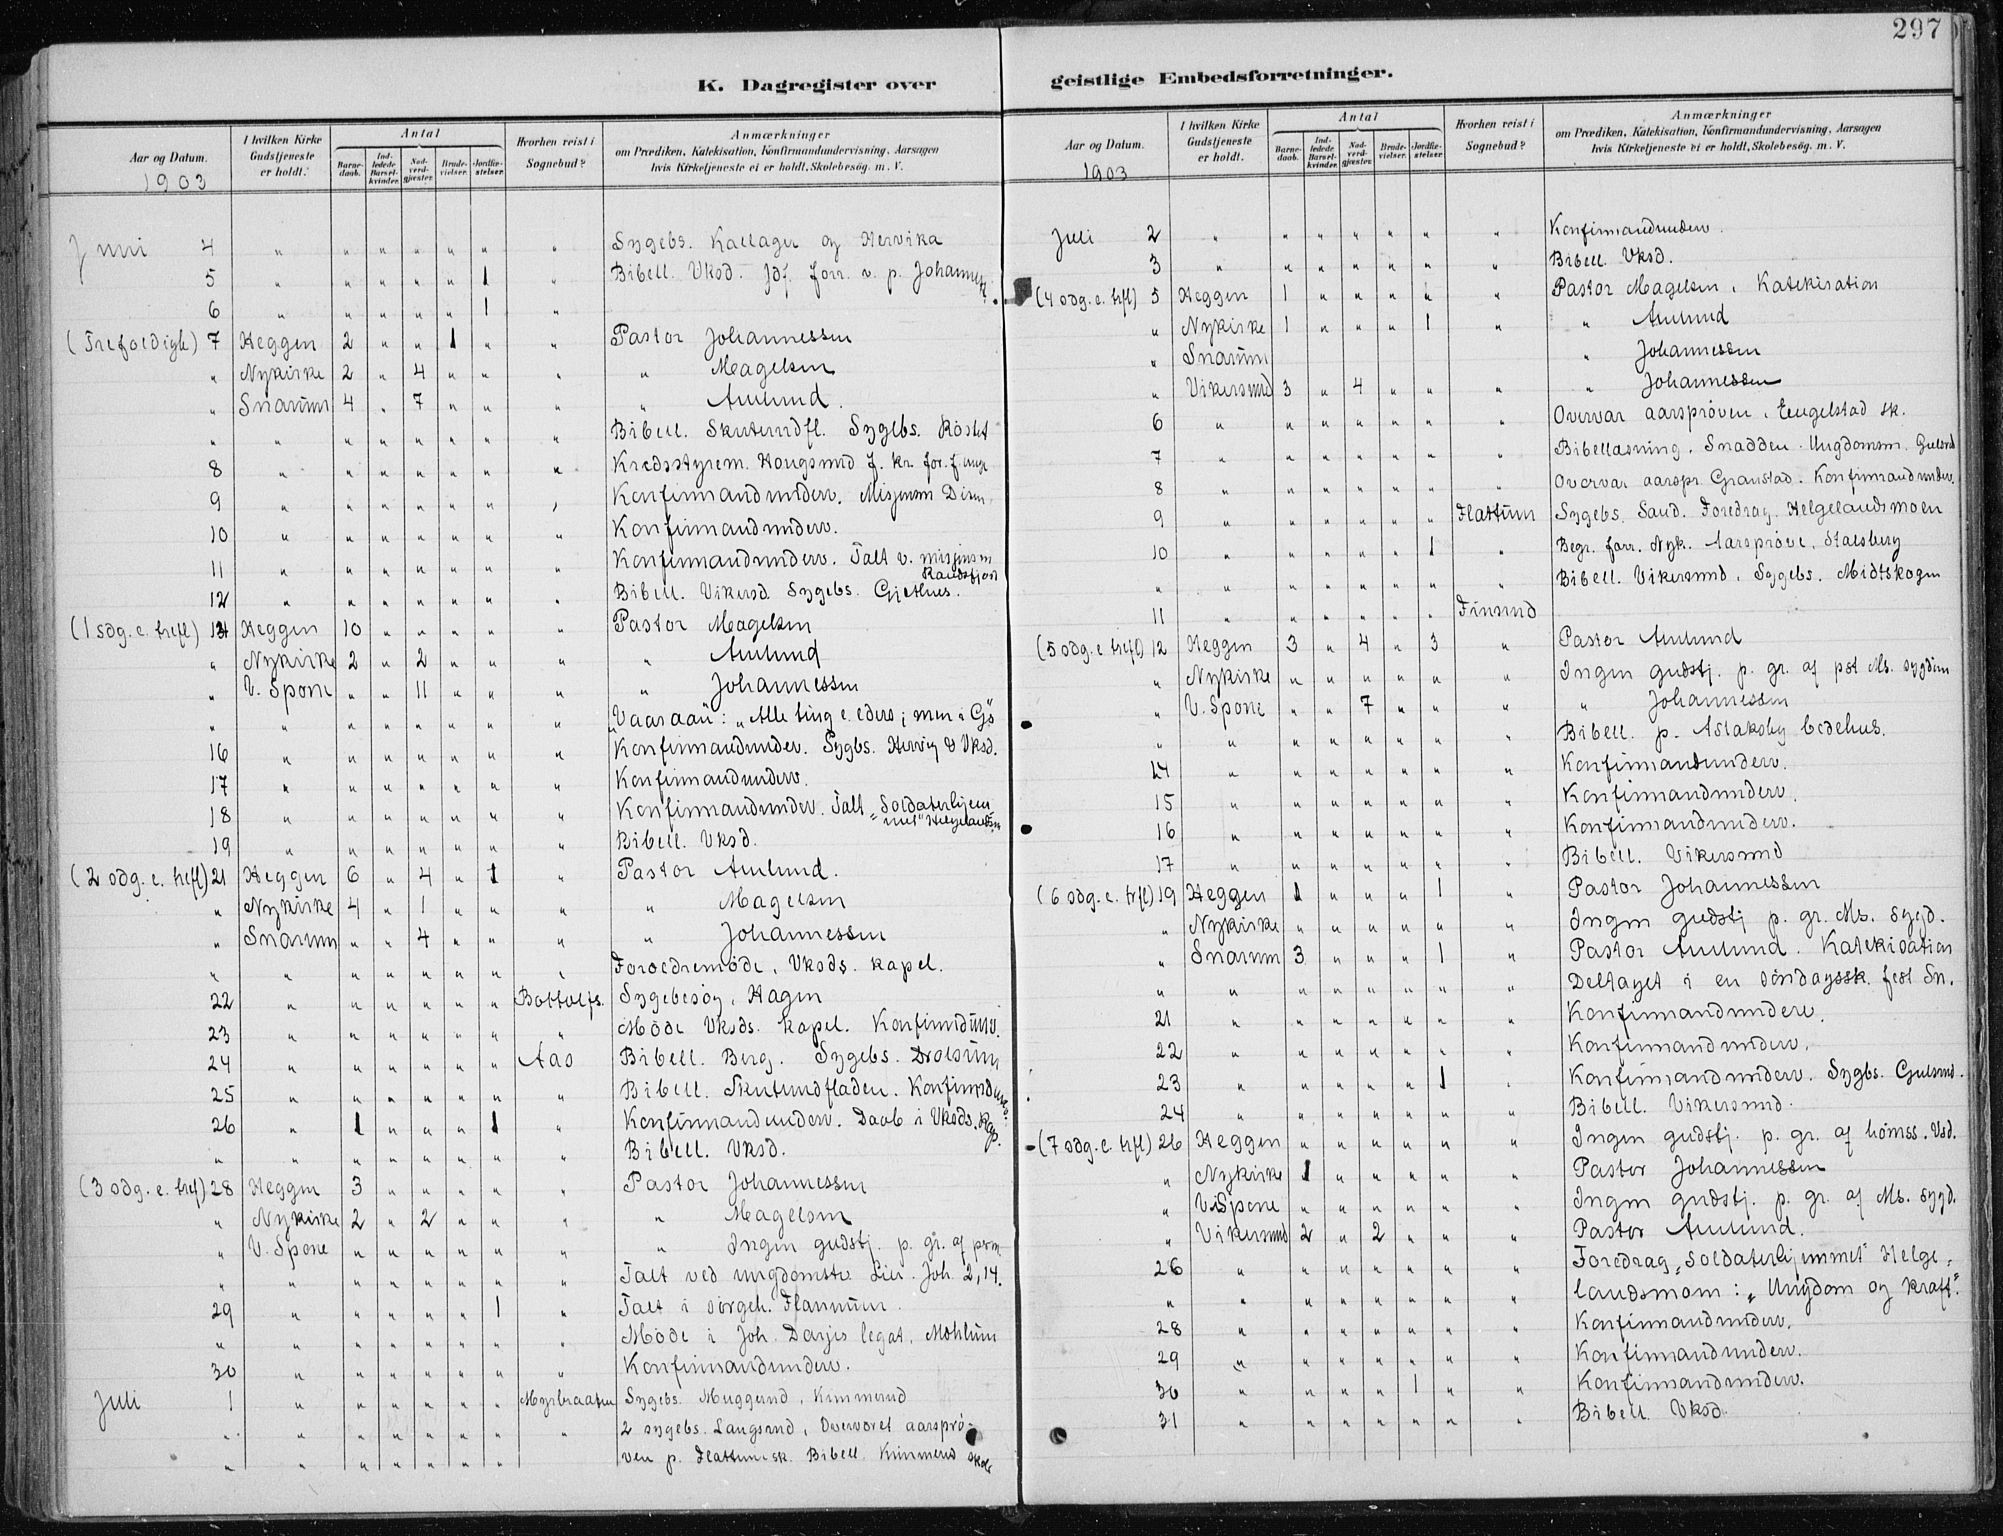 297
K. Dagregister over
geistlige Embedsforretninger.
Aar og Datum.
I hvilken Kirke Gudstjeneste er holdt.
Antal
Barne-daab.
Ind-ledede Barsel-kvinder.
Nad-verd-gjæster.
Brude-vielser.
Jordfæ-stelser.
Hvorhen reist i Sognebud?
Anmærkninger
om Prædiken, Katekisation, Konfirmandundervisning, Aarsagen
hvis Kirketjeneste ei er holdt, Skolebesøg. m. V.
1903
Juni 4 " " " " " " " Sygebs. Kallager og Hervika
5 " " " " " 1 " Bibell. Vksd. Jdf. forr. v. p. Johanness.
6 " " " " " 1 "
(Trefoldigh) 7 Heggen 2 " " 1 " " Pastor Johannessen
" Nykirke 2 " 4 " " " " Magelsen
" Snarum 4 " 7 " " " " Amlund.
" " " " " " " " Bibell. Skuterudfl. Sygebs. Röstet
8 " " " " " " " Kredsstyrem. Hougsund f. kr. for. f. unge
9 " " " " " " " Konfirmandunderv. Misjonsm
10 " " " " " " " Konfirmandunderv.
11 " " " " " " " Konfirmandunderv. Talt v. misjonsm Randsfjord
12 " " " " " " " Bibell. Vikersd. Sygebs. Gjethus.
(1 sdg. e. trefl) 14 Heggen 10 " " " " " Pastor Magelsen
" Nykirke 2 " 2 " " " " Amlund
" V. Spone " " 11 " " " " Johannessen
" " " " " " " " Vaaraan: "Alle ting e. eders; men i G."
16 " " " " " " " Konfirmandunder. Sygbs. Hervig & Vksd.
17 " " " " " " " Konfirmandunderv.
18 " " " " " " " Konfirmandunder. Talt "Soldaterhjem met" Helgelandsm
19 " " " " " " " Bibell. Vksd.
(2 sdg. e. trefl) 21 Heggen 6 " 4 " 1 " Pastor Amlund.
" Nykirke 4 " 1 " " " " Magelsen
" Snarum " " 4 " " " " Johannessen
" " " " " " " " Foredremöde, Vksds. kapel.
22 " " " " " " Bottolfs. Sygebesög, Hagen
23 " " " " " " " Möde Vksds. kapel. Konfirmdunv.
24 " " " " " " Aas Bibell. Berg. Sygebs. Drolsum
25 " " " " " " " Bibell. Skuterudfladen. Konfirmdunv.
26 " 1 " " " 1 " Konfirmandunderv. Daab i Vksds. kap.
" " " " " " " " Bibell. Vksd.
(3 sdg. e. tref) 28 Heggen 3 " " " " " Pastor Johannessen
" Nykirke 2 " 2 " " " " Magelsen
" V. Spone " " " " " " " Ingen gudstj. p. gr. af perm
" " " " " " " " Talt ved ungdomstv. Lier. Joh. 2, 14.
29 " " " " " 1 " Talt i sörgeh. Flannum.
" " " " " " " " Möde i Joh. Darjes legat, Mohlum
30 " " " " " " " Konfirmandunderv.
Juli 1 " " " " " " Myrbraaten Sygebs. Muggerud, Kimmerud
" " " " " " " " 2 sygebs. Langsrud, Overværet aarsprö-
" " " " " " " " ven p. Flattum sk. Bibell. Kimmerud skole
Aar og Datum.
I hvilken Kirke Gudstjeneste er holdt.
Antal
Barne-daab.
Ind-ledede Barsel-kvinder.
Nad-verd-gjæster.
Brude-vielser.
Jordfæ-stelser.
Hvorhen reist i Sognebud?
Anmærkninger
om Prædiken, Katekisation, Konfirmandundervisning, Aarsagen
hvis Kirketjeneste ei er holdt, Skolebesøg. m. V.
1903
Juli 2 " " " " " " " Konfirmandunderv.
3 " " " " " " " Bibell. Vksd.
(4 sdg. e. trfl) 5 Heggen 1 " " " " " Pastor Magelsen, Katekisation
" Nykirke 1 " " " 1 " " Amlund
" Snarum " Johannessen
" Vikersund 3 " 4 " " " " Johannessen
6 " " " " " " " Overvar aarspröven, Engelstad sk.
7 " " " " " " " Bibellæsning, Snadden. Ungdomsm. Gulsrd
8 " " " " " " " Overvar aarspr. Granstad. Konfirmandunderv.
9 " " " " " " Flattum Sygebs. Sand. Foredrag. Helgelandsmoen
10 " " " " " 1 " Begr. forr. Nyk. Aarspröve, Stalsberg
" " " " " " " " Bibell. Vikersund, Sygebs. Midtskogen
11 " " " " " " Finsrud
(5 sdg. e. trefl) 12 Heggen 3 " 4 " 3 " Pastor Amlund
" Nykirke " " " " " " Ingen gudstj. p. gr. af pst Ms. sygdom
" V. Spone " " 7 " " " " Johannessen
" " " " " " " " Bibell. p. Aslaksby bedehus.
14 " " " " " " " Konfirmandunderv.
15 " " " " " " " Konfirmandunderv.
16 " " " " " " " Konfirmandunderv.
17 " " " " " " " Bibell. Vikersund
(6 sdg. e. trfl) 19 Heggen 1 " " " 1 " Pastor Johannessen
" Nykirke " " " " " " Ingen gudstj p. gr. Ms. sygd.
" Snarum 3 " " " 1 " Pastor Amlund. Katekisation
" " " " " " " " Deltaget i en söndagssk. fest Sn.
21 " " " " " " " Konfirmandunderv.
22 " " " " " " " Konfirmandunderv.
23 " " " " " 1 " Konfirmandunderv. Sygbs. Gulsrud.
24 " " " " " " " Bibell. Vikersund.
(7 sdg. e. trfl) 26 Heggen " " " " " " Ingen gudstj. p. gr. af Vsd.
" Nykirke 1 " " " " " Pastor Johannessen
" V. Spone " " " " " " Ingen gudstj. p. gr. af Ms. sygd.
" Vikersund 2 " 2 " " " Pastor Amlund.
26 " " " " " " " Foredrag "Soldaterhjemmet" Helge-
" " " " " " " " landsmoen: "Ungdom og kraft".
28 " " " " " " " Konfirmandunderv.
29 " " " " " " " Konfirmandunderv.
30 " " " " 1 " " Konfirmandunderv.
31 " " " " " " " Bibell. Vksd.